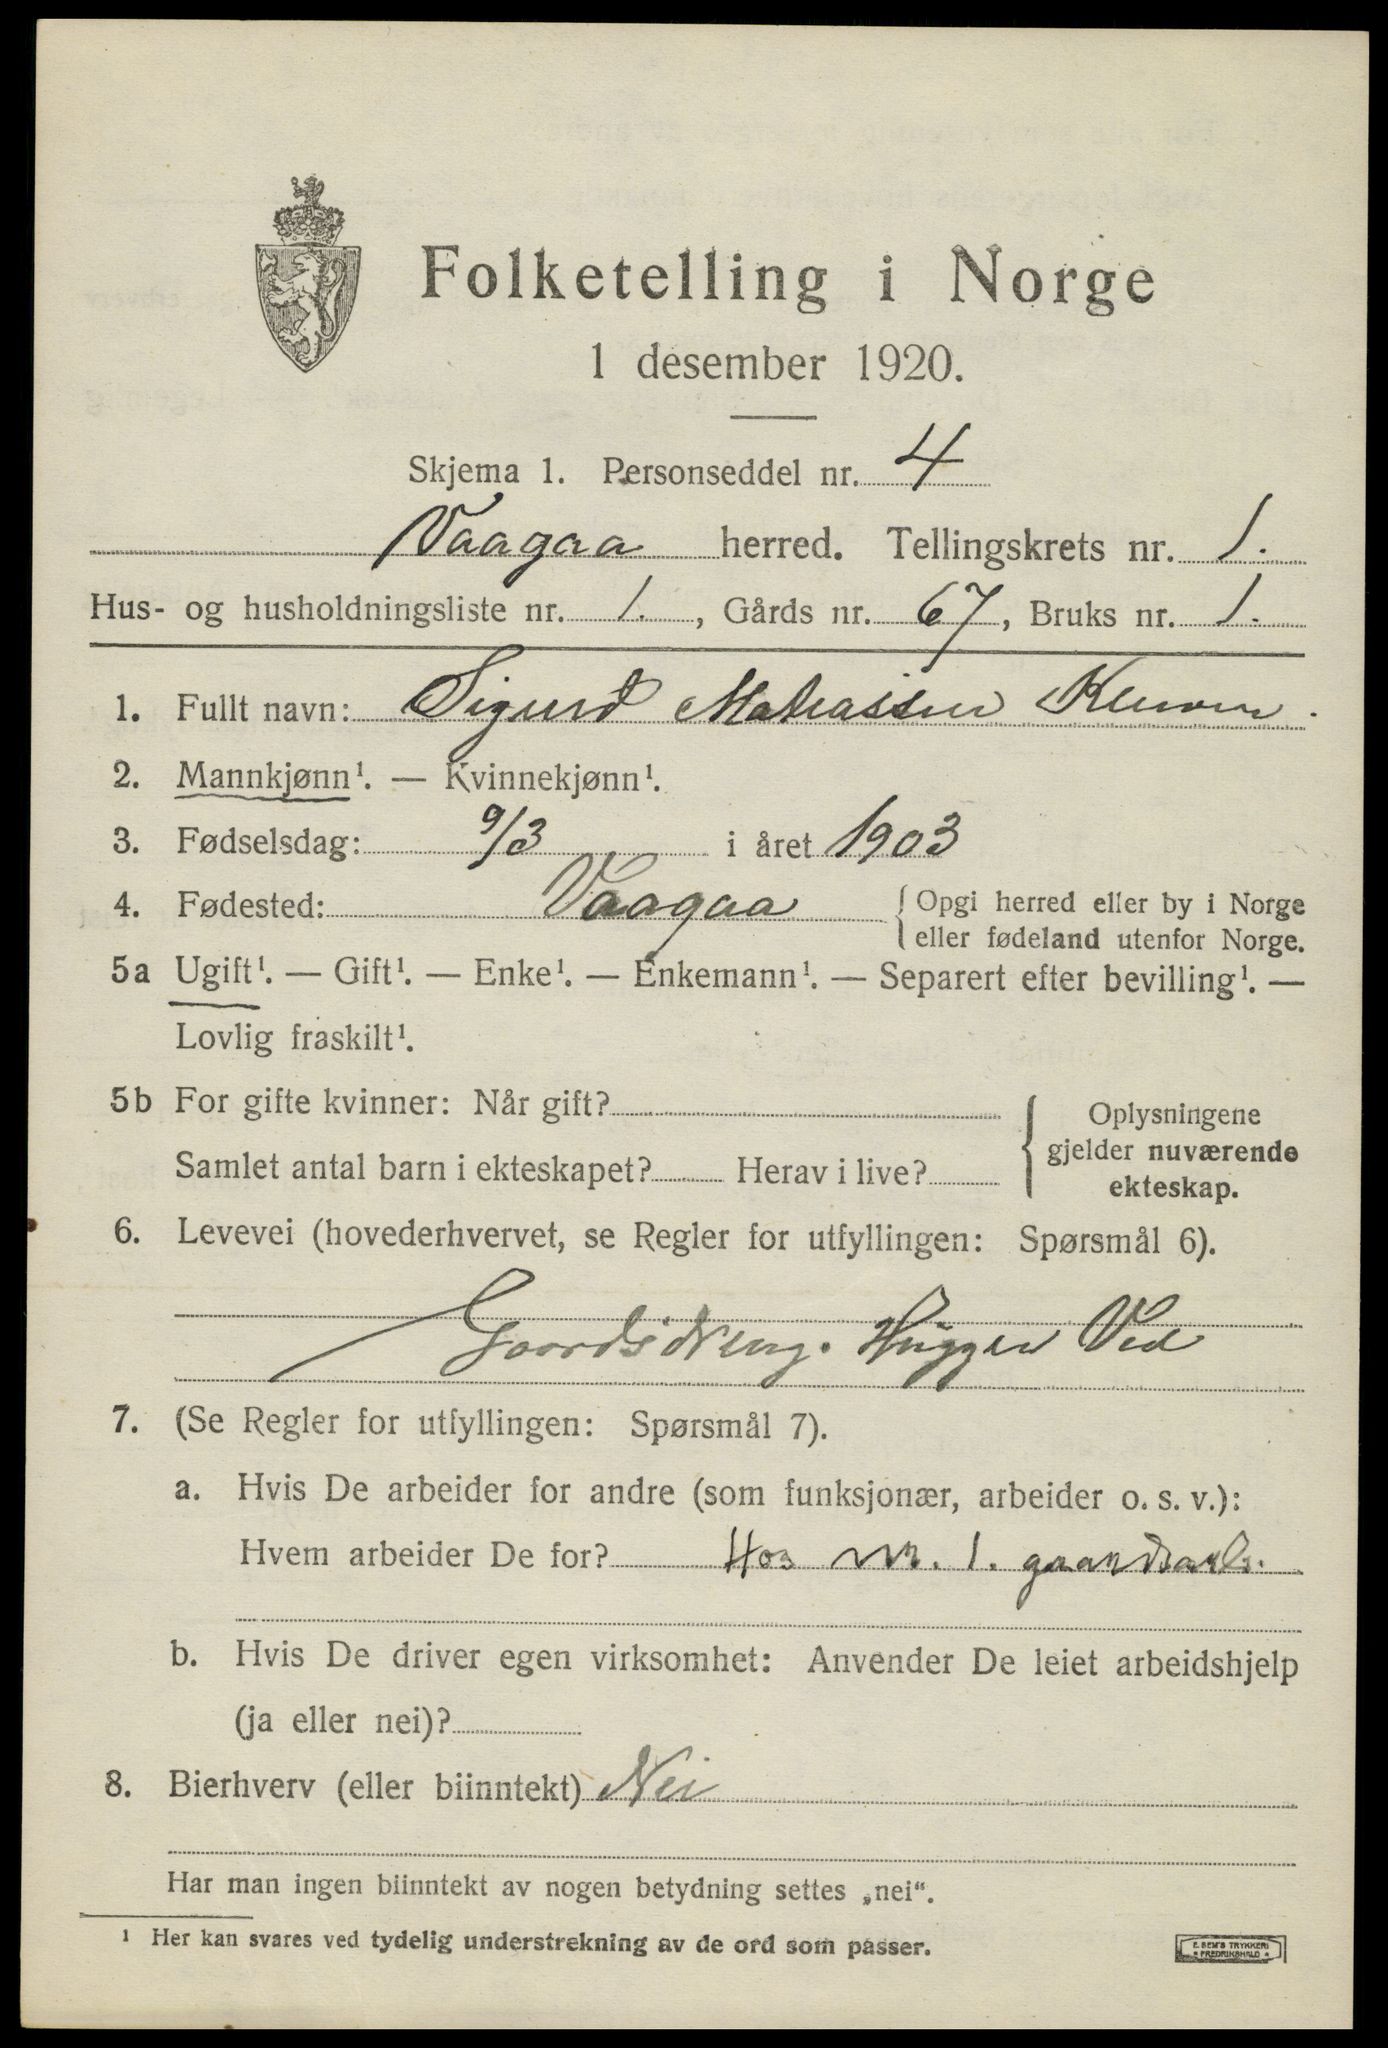 Folketelling i Norge
1 desember 1920.
Skjema 1. Personseddel nr. 4
Vaagaa herred. Tellingskrets nr. 1.
Hus- og husholdningsliste nr. 1., Gårds nr. 67, Bruks nr. 1.
1. Fullt navn: Sigurd
2. Mannkjønn¹. — Kvinnekjønn¹.
3. Fødselsdag: 9/3 i året 1903
4. Fødested: Vaagaa { Opgi herred eller by i Norge
eller fødeland utenfor Norge.
5a Ugift¹. — Gift¹. — Enke¹. — Enkemann¹. — Separert efter bevilling¹. —
Lovlig fraskilt¹.
5b For gifte kvinner: Når gift?
Samlet antal barn i ekteskapet? Herav i live?
{ Oplysningene
gjelder nuværende
ekteskap.
6. Levevei (hovederhvervet, se Regler for utfyllingen: Spørsmål 6).
Gaardsdreng. Hugger Ved
7. (Se Regler for utfyllingen: Spørsmål 7).
a. Hvis De arbeider for andre (som funksjonær, arbeider o. s. v.):
Hvem arbeider De for? Hos nr. 1.
b. Hvis De driver egen virksomhet: Anvender De leiet arbeidshjelp
(ja eller nei)?
8. Bierhverv (eller biinntekt) Nei
Har man ingen biinntekt av nogen betydning settes „nei“.
¹ Her kan svares ved tydelig understrekning av de ord som passer.
E. SEM'S TRYKKERI
* FREDRIKSHALD *